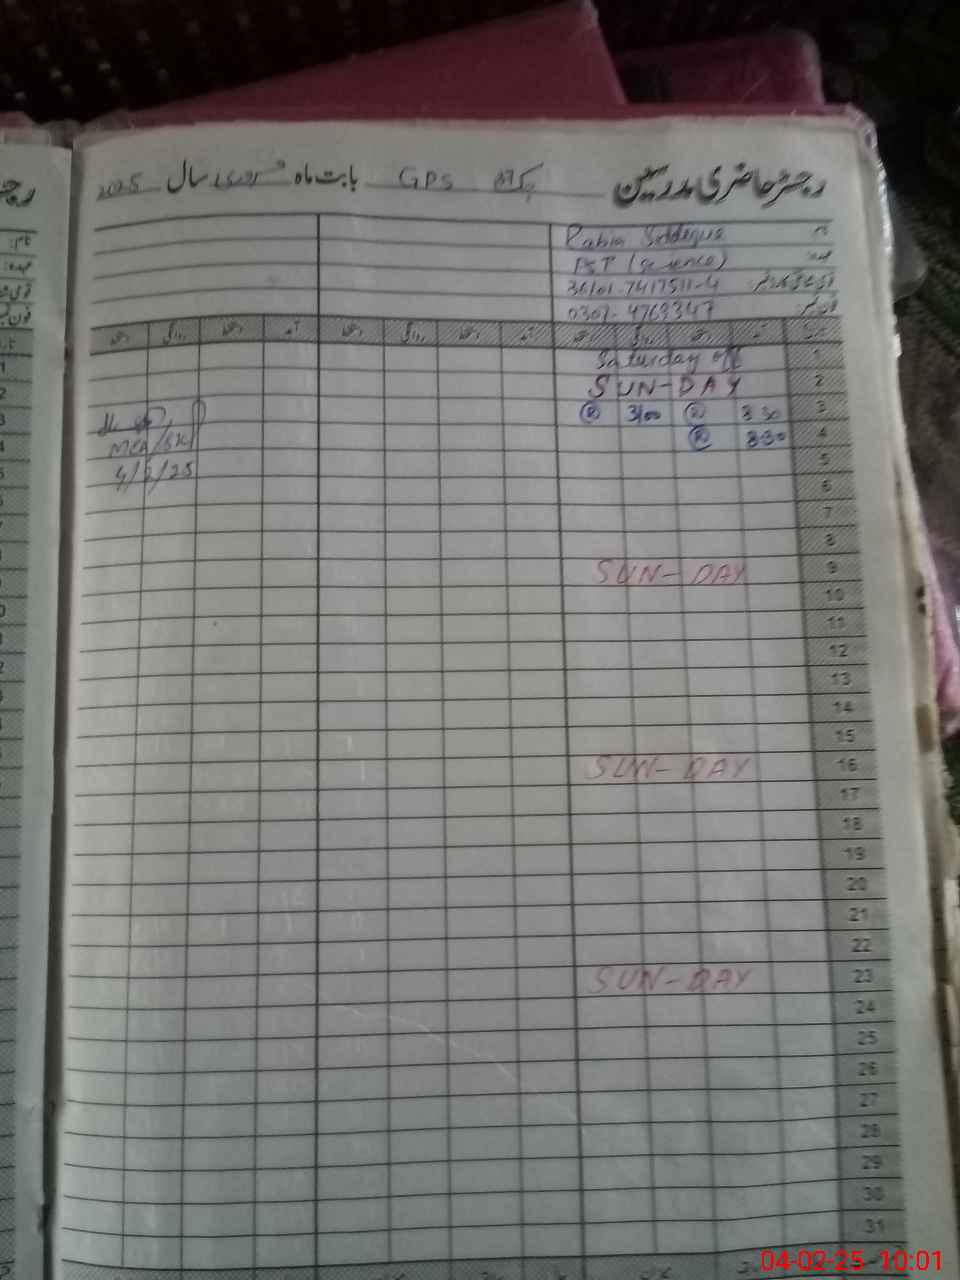 رجسٹر حاضری مدرسین GPS بابت ماہ فروری سال 2025
نام Rabia Siddequa
عہدہ PST (science)
36101-7417511-4
فون نمبر 0307-4763347
تاریخ آمد دستخط روانگی دستخط آمد دستخط روانگی دستخط آمد دستخط روانگی دستخط
1 Saturday off
2 SUN-DAY
3 8 30 R 3/00 R
4 8:30 R
MEA/SKP
4/2/25
5
6
7
8
9 SUN-DAY
10
11
12
13
14
15
16 SUN-DAY
17
18
19
20
21
22
23 SUN-DAY
24
25
26
27
28
29
30
31
04-02-25 10:01